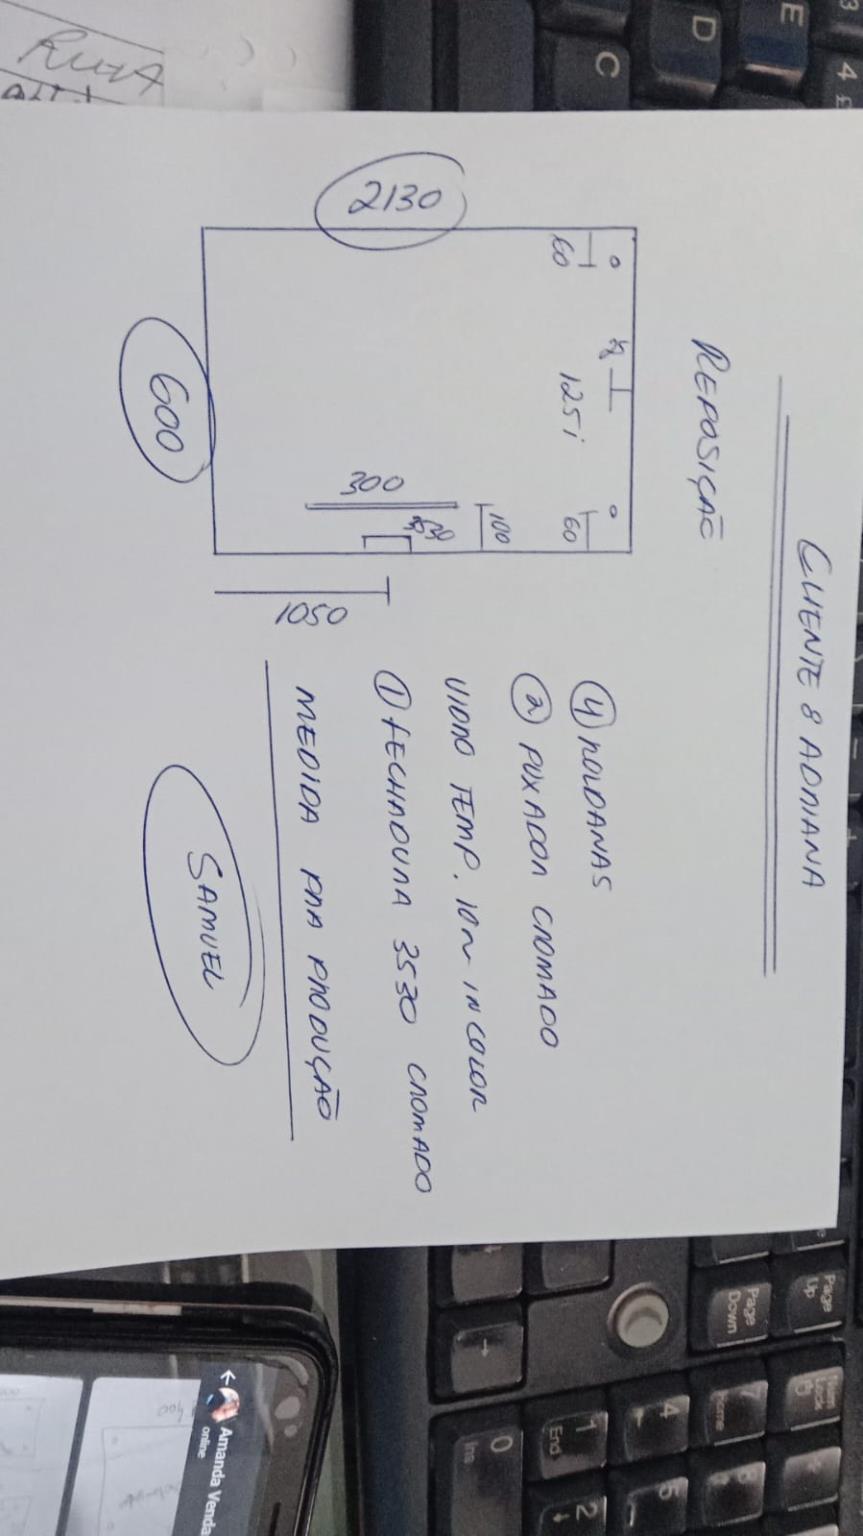 CLIENTE 8 ADRIANA
REPOSIÇÃO
2130
60
125i
60
100
300
3530
1050
600
④ ROLDANAS
② PUXADOR CROMADO
VIDRO TEMP. 10m INCOLOR
① FECHADURA 3530 CROMADO
MEDIDA PRA PRODUÇÃO
SAMUEL
RUTA
Amanda Venda
online
3
E
4 £
D
C
Page Up
Page Down
Num Lock
7 Home
8
4
5
1 End
2
0 Ins